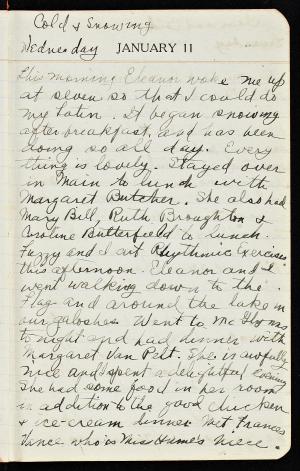 Cold & Snowing
Wednesday JANUARY 11
This morning Eleanor woke me up
at seven so that I could do
my Latin. It began snowing
after breakfast, and has been
doing so all day. Every
thing is lovely. Stayed over
in Main to lunch with
Margaret Butcher. She also had
Mary Bill, Ruth Broughton &
Caroline Butterfield to lunch.
Fuzzy and I cut Rhythmic Exercises
this afternoon. Eleanor and I
went walking down to the
Flag and around the lake in
our galoshes. Went to McGlynns
to night and had dinner with
Margaret Van Pelt. She is awfully
nice and I spent a delightful evening
She had some food in her room
in addition to the good chicken
& ice-cream dinner. Met Frances
Vance who is Miss Himes niece.